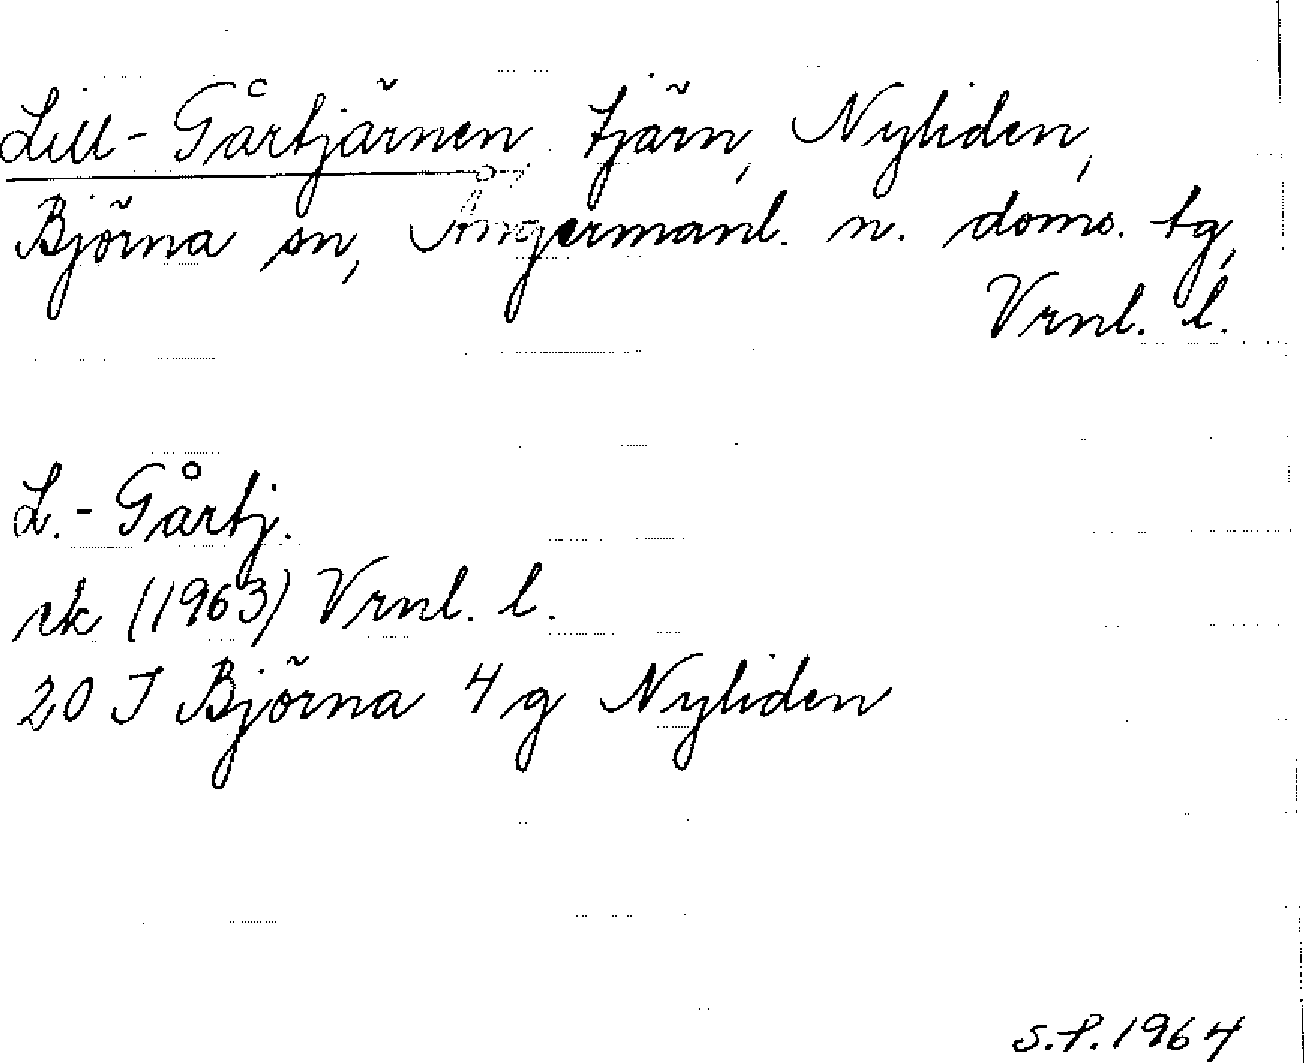 Lill-Gårtjärnen tjärn, Nyliden,
Björna sn, Ångermanl. n. doms. tg,
Vrnl. l.
L.-Gårtj.
rk (1963) Vrnl. l.
20 J Björna 4g Nyliden
S.P. 1964